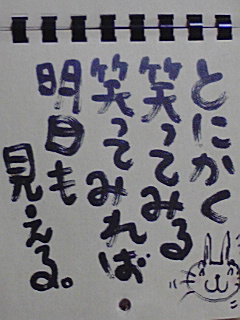 とにかく
笑ってみる
笑ってみれば
明日も
見える。